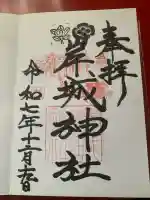 奉拝
岸城神社
令和七年十二月吉日